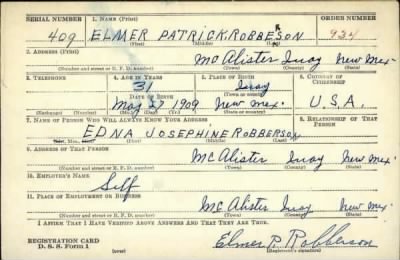 SERIAL NUMBER 1. NAME (Print) ORDER NUMBER
409 ELMER PATRICK ROBBESON 924
(First) (Middle) (Last)
2. ADDRESS (Print)
McAlister Quay New Mex
(Number and street or R. F. D. number) (Town) (County) (State)
3. TELEPHONE 4. AGE IN YEARS 5. PLACE OF BIRTH 6. COUNTRY OF CITIZENSHIP
31 Quay
DATE OF BIRTH (Town or county)
May 27 1909 New Mex. U.S.A.
(Exchange) (No.) (Mo.) (Day) (Yr.) (State or country)
7. NAME OF PERSON WHO WILL ALWAYS KNOW YOUR ADDRESS 8. RELATIONSHIP OF THAT PERSON
EDNA JOSEPHINE ROBBERSON
(Mr., Mrs., Miss) (First) (Middle) (Last)
9. ADDRESS OF THAT PERSON
McAlister Quay New Mex
(Number and street or R. F. D. number) (Town) (County) (State)
10. EMPLOYER'S NAME
Self
11. PLACE OF EMPLOYMENT OR BUSINESS
McAlister Quay New Mex
(Number and street or R. F. D. number) (Town) (County) (State)
I AFFIRM THAT I HAVE VERIFIED ABOVE ANSWERS AND THAT THEY ARE TRUE.
REGISTRATION CARD
D. S. S. Form 1 (over) Elmer P. Robberson
(Registrant's signature)